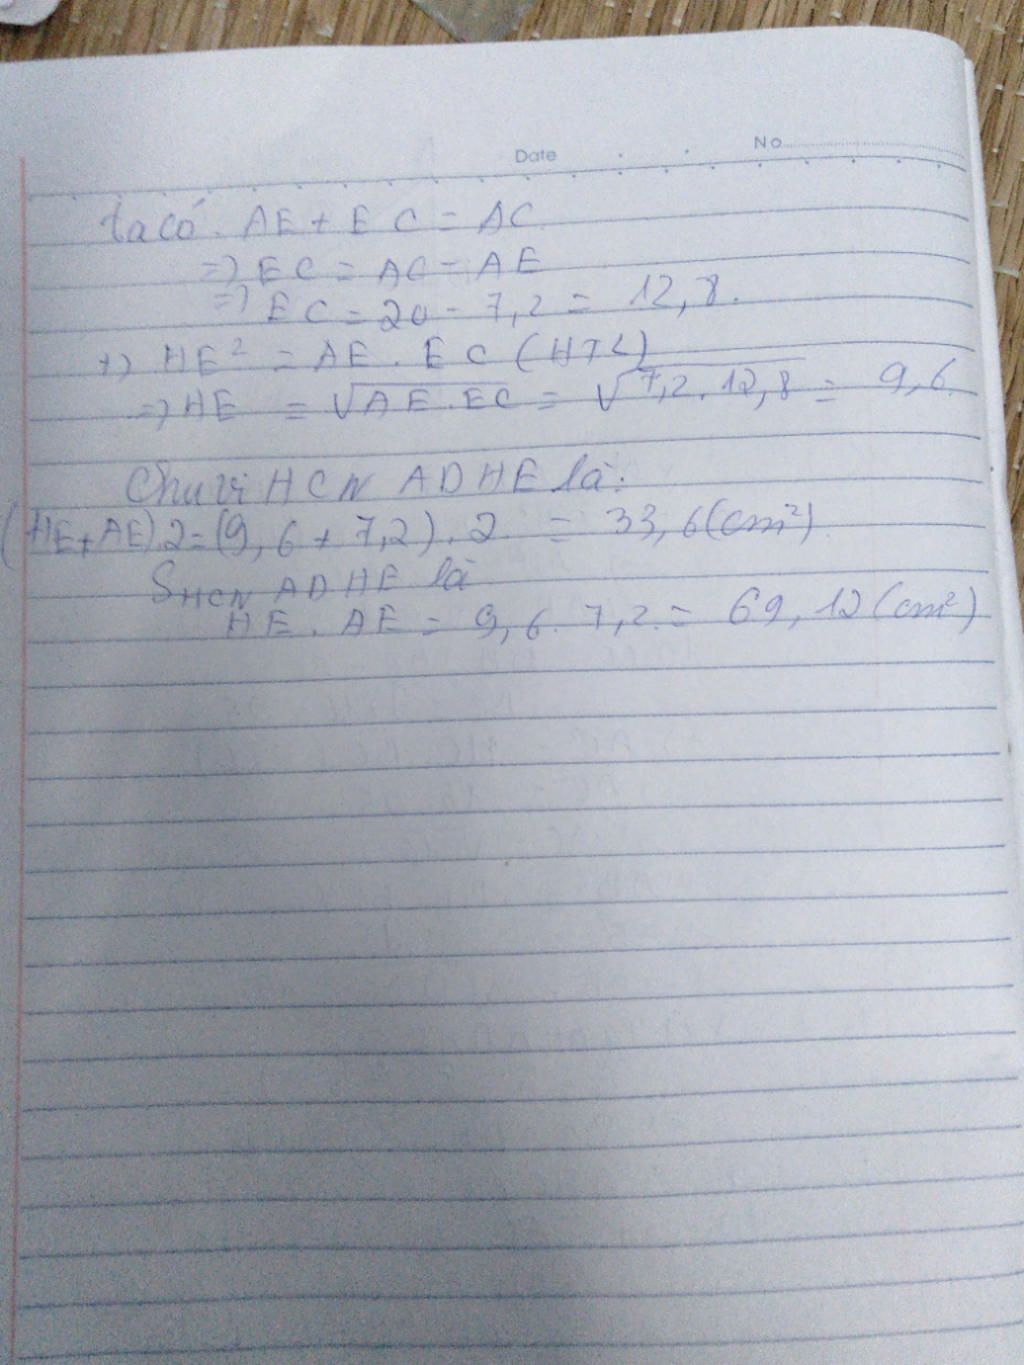 Date No
ta có. AE + EC = AC
=> EC = AC - AE
=> EC = 20 - 7,2 = 12,8.
+) HE² = AE . EC (HTL)
=> HE = √AE.EC = √7,2.12,8 = 9,6
Chu vi HCN ADHE là:
(HE+AE).2=(9,6+7,2).2 = 33,6(cm²)
SHCN ADHE là
HE . AE = 9,6.7,2.= 69,12(cm²)